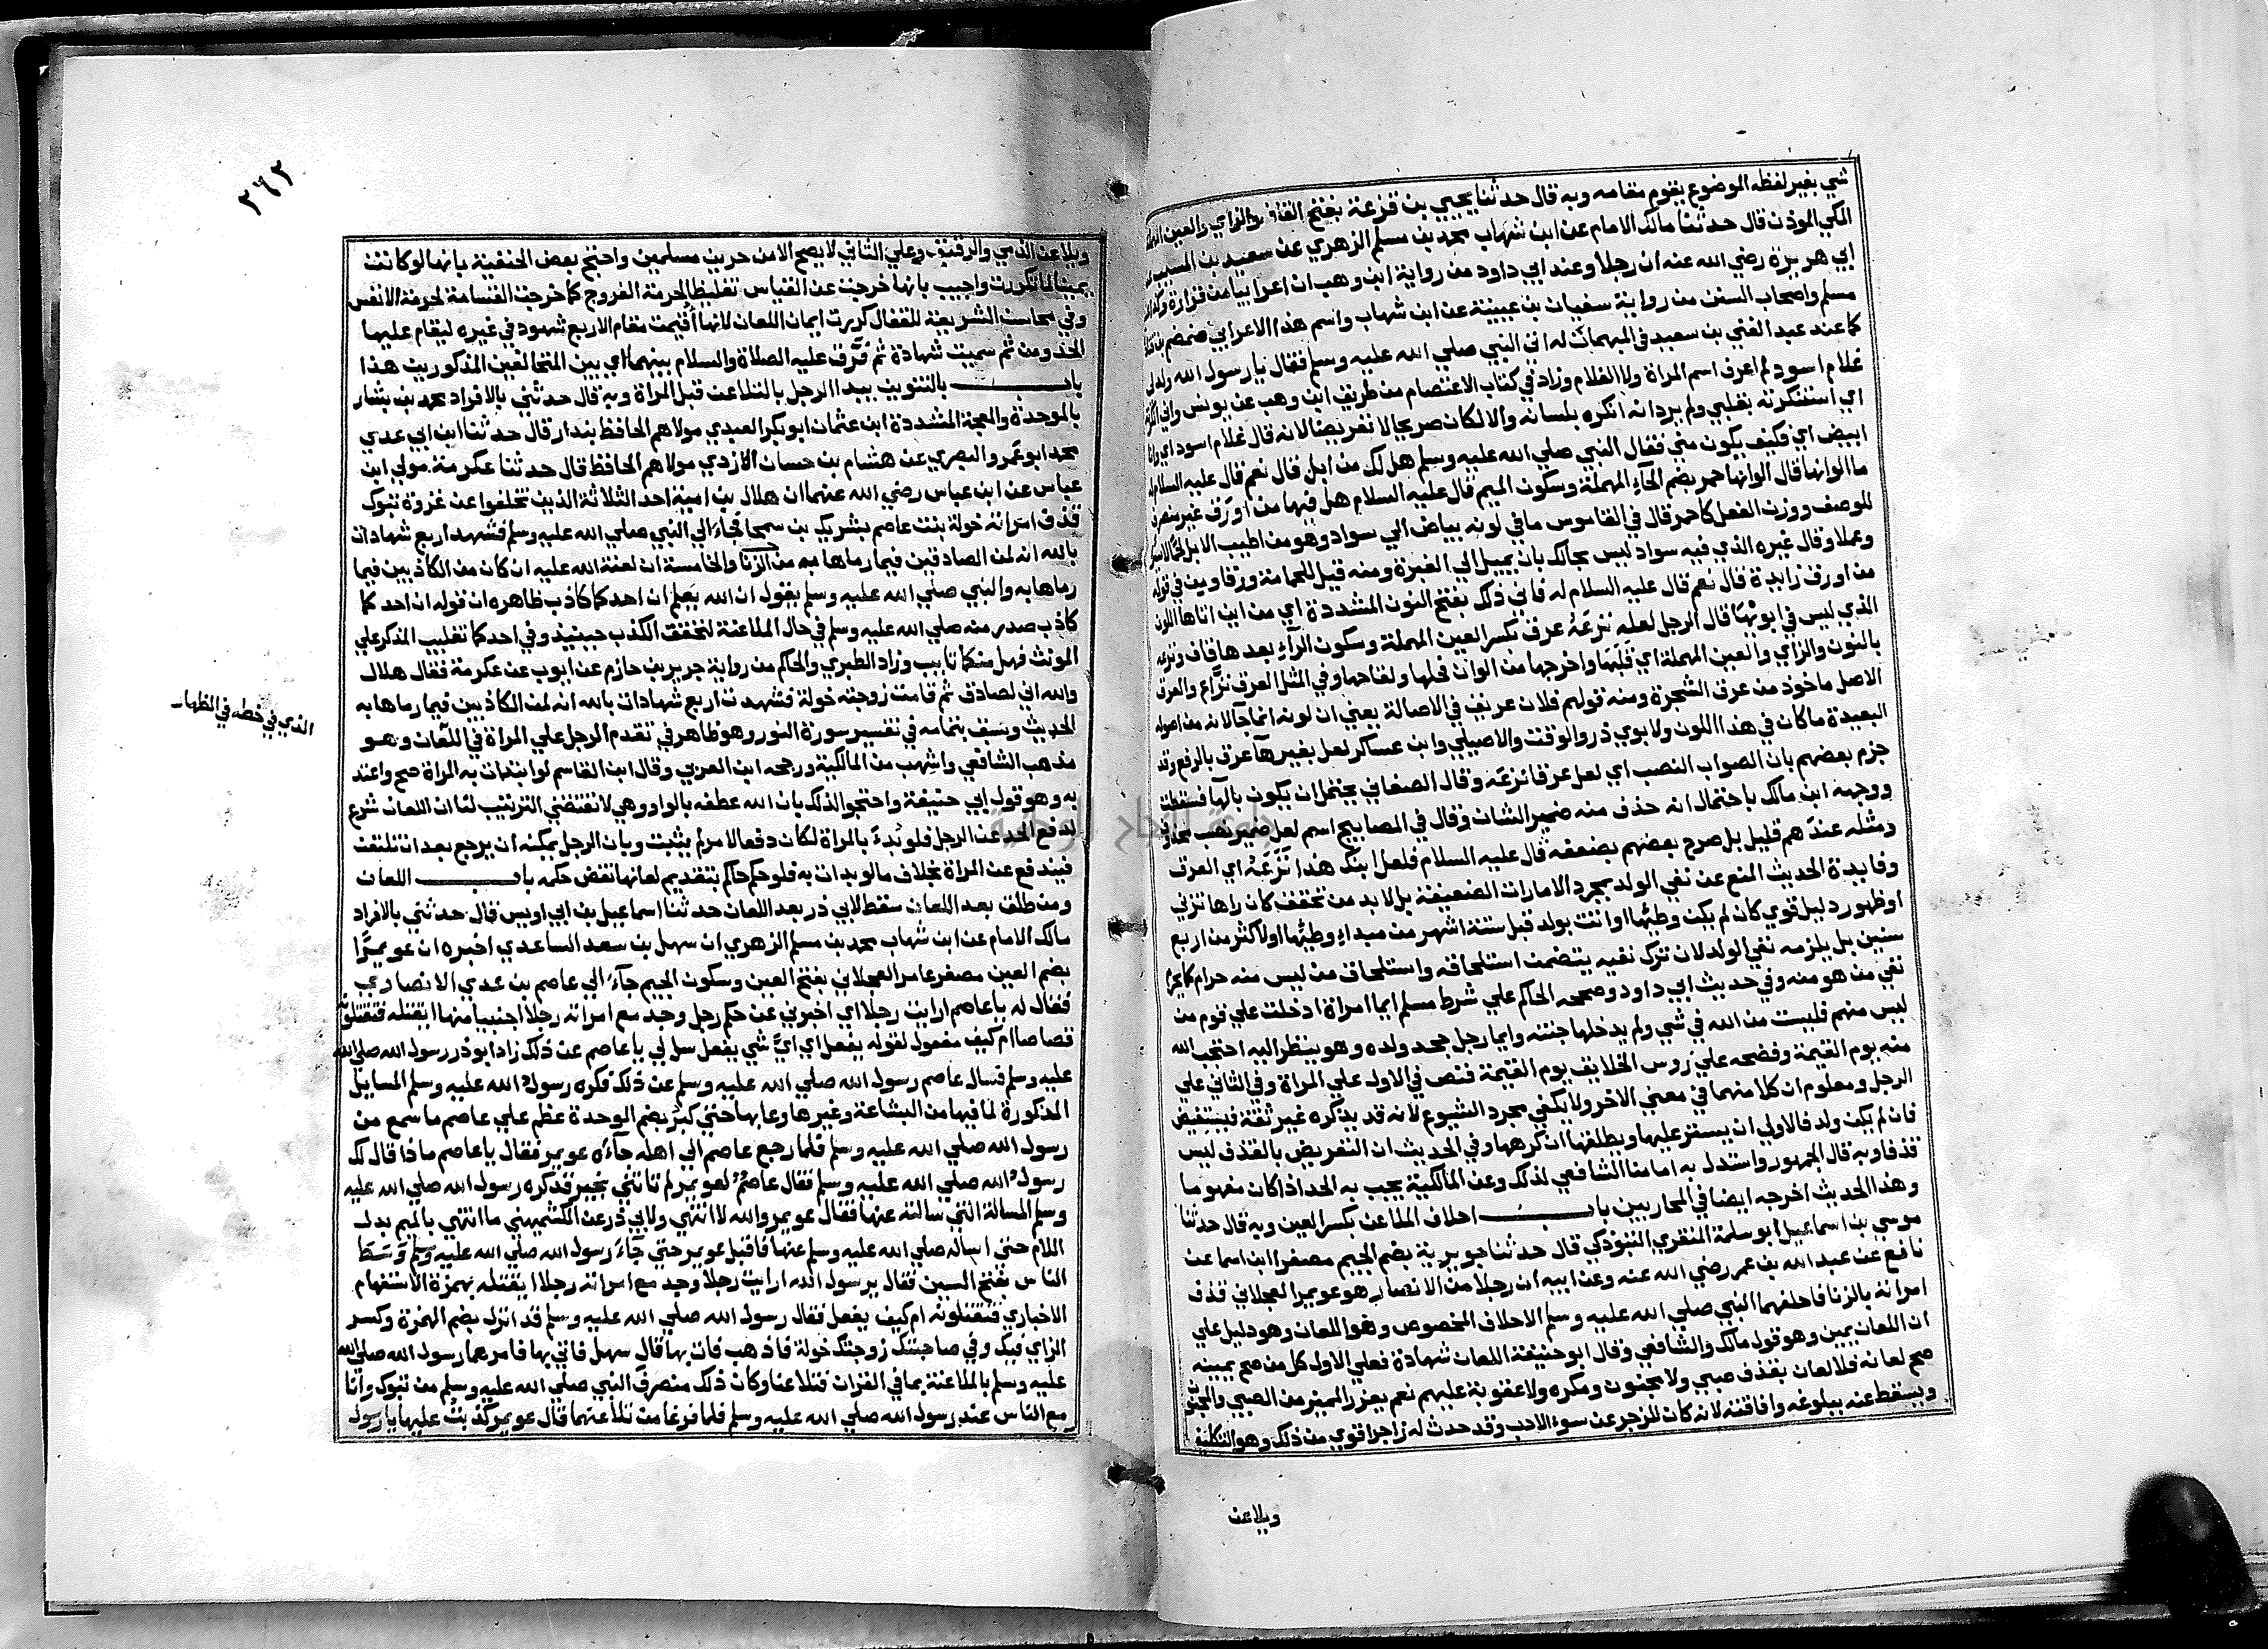 شي بغير لفظه الموضوع يقوم مقامه وبه قال حدثنا يحيي بن قزعة بفتح القاف والزاي والعين المهملة
المكي الموذن قال حدثنا مالك الامام عن ابن شهاب محمد بن مسلم الزهري عن سعيد بن المسيب عن
ابي هريرة رضي الله عنه ان رجلا وعند ابي داود من رواية ابن وهب ان اعرابيا من فزارة وكذا
مسلم واصحاب السنن من رواية سفيان بن عيينة عن ابن شهاب واسم هذا الاعرابي ضمضم بن قتادة
كما عند عبد الغني بن سعيد في المبهمات له اتي النبي صلي الله عليه وسلم فقال يا رسول الله ولد لي
غلام اسود لم اعرف اسم المراة ولا الغلام وزاد في كتاب الاعتصام من طريق ابن وهب عن يونس واني انكرته
اي استنكرته بقلبي ولم يرد انه انكره بلسانه والا لكان صريحا لا تعريضا لانه قال غلام اسود اي وانا
ابيض اي فكيف يكون مني فقال النبي صلي الله عليه وسلم هل لك من ابل قال نعم قال عليه السلام له
ما الوانها قال الوانها حمر بضم الحآء المهملة وسكون الميم قال عليه السلام هل فيها من اورق غير منصرف
للوصف ووزن الفعل كاحمر قال في القاموس ما في لونه بياض الي سواد وهو من اطيب الابل لحما لا سيرا
وعملا وقال غيره الذي فيه سواد ليس بحالك بان يميل الي الغبرة ومنه قيل للحمامة ورقا ومن في قوله
من اورق زايدة قال نعم قال عليه السلام له فاني ذلك بفتح النون المشددة اي من اين اتاها اللون
الذي ليس في ابويها قال الرجل لعله نزعه عرق بكسر العين المهملة وسكون الرآء بعدها قاف ونزعه
بالنون والزاي والعين المهملة اي قلبها واخرجها من الوان فحلها ولقاحها وفي المثل العرق نزاع والعرق
الاصل ماخوذ من عرق الشجرة ومنه قولهم فلان عريق في الاصالة يعني ان لونه انما جآ لانه من اصوله
البعيدة ما كان في هذا اللون ولابوي ذر والوقت والاصيلي وابن عساكر لعل بغير هآ عرق بالرفع وقد
جزم بعضهم بان الصواب النصب اي لعل عرقا نزعه وقال الصغاني يحتمل ان يكون بالهآ فسقطت
ووجهه ابن مالك باحتمال انه حذف منه ضمير الشان وقال في المصابيح اسم لعل ضمير نصب محذوف
ومثله عندهم قليل بل صرح بعضهم بضعفه قال عليه السلام فلعل ابنك هذا نزعه اي العرق
وفايدة الحديث المنع عن نفي الولد بمجرد الامارات الضعيفة بل لا بد من تحقق كان راها تزني
او ظهور دليل قوي كان لم يكن وطيها او اتت بولد قبل ستة اشهر من مبداء وطيها او لاكثر من اربع
سنين بل يلزمه نفي الولد لان ترك نفيه يتضمن استلحاقه واستلحاق من ليس منه حرام كما يحرم
نفي من هو منه وفي حديث ابي داود وصححه الحاكم علي شرط مسلم ايما امراة ادخلت علي قوم من
ليس منهم فليست من الله في شي ولم يدخلها جنته وايما رجل جحد ولده وهو ينظر اليه احتجب الله
منه يوم القيمة وفضحه علي روس الخلايق يوم القيمة فنص في الاول علي المراة وفي الثاني علي
الرجل ومعلوم ان كلا منهما في معني الاخر ولا يكفي مجرد الشيوع لانه قد يذكره غير ثقة فيستفيض
فان لم يكن ولد فالاولي ان يستر عليها ويطلقها ان كرهها وفي الحديث ان التعريض بالقذف ليس
قذفا وبه قال الجمهور واستدل به امامنا الشافعي لذلك وعن المالكية يجب به الحد اذا كان مفهوما
وهذا الحديث اخرجه ايضا في المحاربين باب احلاف الملاعن بكسر العين وبه قال حدثنا
موسي بن اسماعيل ابو سلمة المنقري التبوذكي قال حدثنا جويرية بضم الجيم مصغرا ابن اسما عن
نافع عن عبد الله بن عمر رضي الله عنه وعن ابيه ان رجلا من الانصار هو عويمر العجلاني قذف
امراته بالزنا فاحلفهما النبي صلي الله عليه وسلم الاحلاف المخصوص وهو اللعان وهو دليل علي
ان اللعان يمين وهو قول مالك والشافعي وقال ابو حنيفة اللعان شهادة فعلي الاول كل من صح يمينه
صح لعانه فلا لعان بقذف صبي ولا مجنون ومكره ولا عقوبة عليهم نعم يعزر المميز من الصبي والمجنون
ويسقط عنه ببلوغه وافاقته لانه كان للزجر عن سوء الادب وقد حدث له زاجر اقوي من ذلك وهو التكليف
ويلاعن
٢٦٢
ويلاعن الذمي والرقيق وعلي الثاني لا يصح الا من حرين مسلمين واحتج بعض الحنفية بانها لو كانت
يمينا لما تكررت واجيب بانها خرجت عن القياس تغليظا لحرمة الفروج كما خرجت القسامة لحرمة الانفس
وفي محاسن الشريعة للقفال كررت ايمان اللعان لانها اقيمت مقام الاربع شهود في غيره ليقام عليها
الحد ومن ثم سميت شهادة ثم فرق عليه الصلاة والسلام بينهما اي بين المتحالفين المذكورين هذا
باب بالتنوين يبدا الرجل بالتلاعن قبل المراة وبه قال حدثني بالافراد محمد بن بشار
بالموحدة والمعجمة المشددة ابن عثمان ابو بكر العبدي مولاهم الحافظ بندار قال حدثنا ابن ابي عدي
محمد ابو عمرو البصري عن هشام بن حسان الازدي مولاهم الحافظ قال حدثنا عكرمة مولي ابن
عباس عن ابن عباس رضي الله عنهما ان هلال بن امية احد الثلاثة الذين تخلفوا عن غزوة تبوك
قذف امراته خولة بنت عاصم بشريك بن سمحا فجاء الي النبي صلي الله عليه وسلم فشهد اربع شهادات
بالله انه لمن الصادقين فيما رماها به من الزنا والخامسة ان لعنة الله عليه ان كان من الكاذبين فيما
رماها به والنبي صلي الله عليه وسلم يقول ان الله يعلم ان احدكما كاذب ظاهره ان قوله ان احدكما
كاذب صدر منه صلي الله عليه وسلم في حال الملاعنة لتحقق الكذب حينيذ وفي احدكما تغليب المذكر علي
المونث فهل منكما تايب وزاد الطبري والحاكم من رواية جرير بن حازم عن ايوب عن عكرمة فقال هلال
والله اني لصادق ثم قامت زوجته خولة فشهدت اربع شهادات بالله انه لمن الكاذبين فيما رماها به
الحديث وسبق بتمامه في تفسير سورة النور وهو ظاهر في تقدم الرجل علي المراة في اللعان وهو
الذي في خطه في الظهار
مذهب الشافعي واشهب من المالكية ورجحه ابن العربي وقال ابن القاسم لو ابتدات به المراة صح واعتد
به وهو قول ابي حنيفة واحتجوا لذلك بان الله عطفه بالواو وهي لا تقتضي الترتيب لنا ان اللعان شرع
لدفع الحد عن الرجل فلو بدء بالمراة لكان دفعا لامر لم يثبت وبان الرجل يمكنه ان يرجع بعد ان تلتعن
فيندفع عن المراة بخلاف ما لو بدات به فلو حكم حاكم بتقديم لعانها نقض حكمه باب اللعان
ومن طلق بعد اللعان سقط لابي ذر بعد اللعان حدثنا اسماعيل بن ابي اويس قال حدثني بالافراد
مالك الامام عن ابن شهاب محمد بن مسلم الزهري ان سهل بن سعد الساعدي اخبره ان عويمرا
بضم العين مصغر عامر العجلاني بفتح العين وسكون الجيم جآء الي عاصم بن عدي الانصاري
فقال له يا عاصم ارايت رجلا اي اخبرني عن حكم رجل وجد مع امراته رجلا اجنبيا منها ايقتله فتقتلونه
قصاصا ام كيف مفعول لقوله يفعل اي اي شي يفعل سل لي يا عاصم عن ذلك زاد ابو ذر رسول الله صلي الله
عليه وسلم فسال عاصم رسول الله صلي الله عليه وسلم عن ذلك فكره رسول الله عليه وسلم المسايل
المذكورة لما فيها من البشاعة وغيرها وعابها حتي كبر بضم الوحدة عظم علي عاصم ما سمع من
رسول الله صلي الله عليه وسلم فلما رجع عاصم الي اهله جآءه عويمر فقال يا عاصم ماذا قال لك
رسول الله صلي الله عليه وسلم فقال عاصم لعويمر لم تاتني بخير قد كره رسول الله صلي الله عليه
وسلم المسالة التي سالته عنها فقال عويمر والله لا انتهي ولابي ذر عن الكشميهني ما انتهي بالميم بدل
اللام حتي اساله صلي الله عليه وسلم عنها فاقبل عويمر حتي جآء رسول الله صلي الله عليه وسلم وسط
الناس بفتح السين فقال يرسول الله ارايت رجلا وجد مع امراته رجلا ايقتله بهمزة الاستفهام
الاخباري فتقتلونه ام كيف يفعل فقال رسول الله صلي الله عليه وسلم قد انزل بضم الهمزة وكسر
الزاي فيك وفي صاحبتك زوجتك خولة فاذهب فات بها قال سهل فاتي بها فامرهما رسول الله صلي الله
عليه وسلم بالملاعنة بما في القران فتلاعنا وكان ذلك منصرف النبي صلي الله عليه وسلم من تبوك وانا
مع الناس عند رسول الله صلي الله عليه وسلم فلما فرغا من تلاعنهما قال عويمر كذبت عليها يا رسول